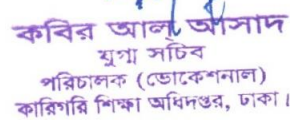 কবির আল আসাদ
যুগ্ম সচিব
পরিচালক (ভোকেশনাল)
কারিগরি শিক্ষা অধিদপ্তর, ঢাকা।